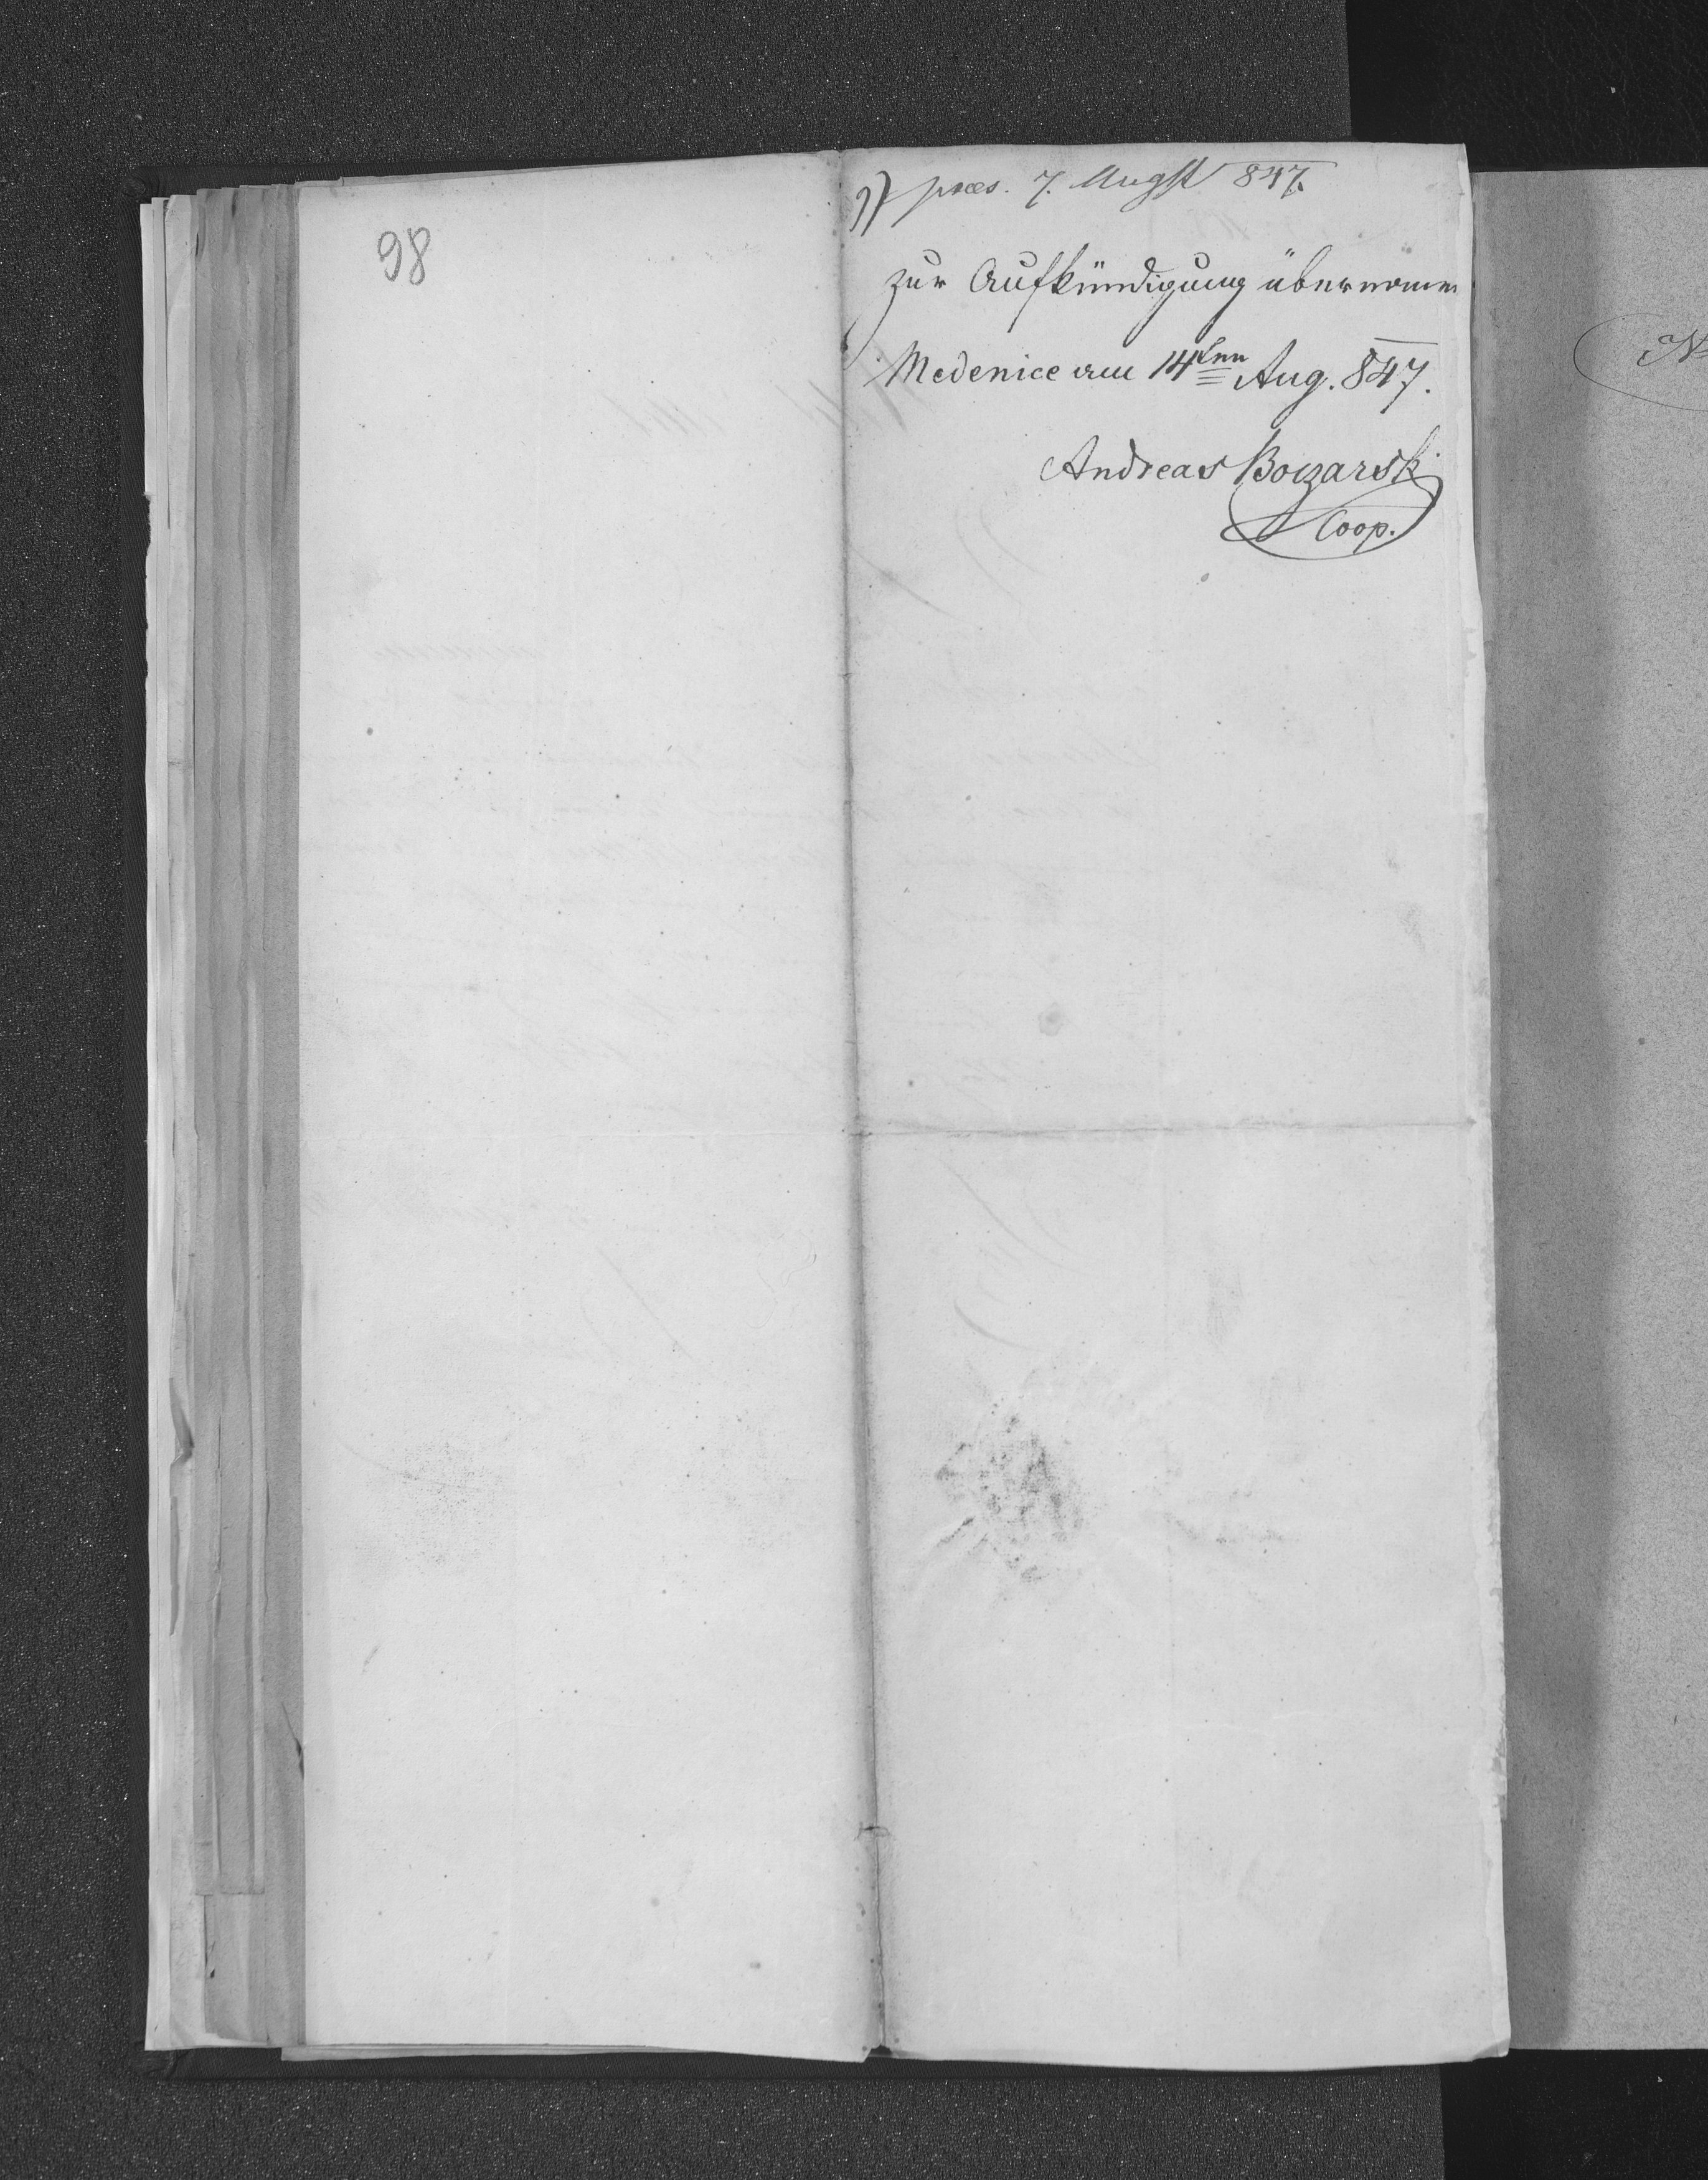 98
præs. 7. Augst 847.
zur Aufkündigung übernomen
Medenice am 14ten Aug. 847.
Andreas
Coop.